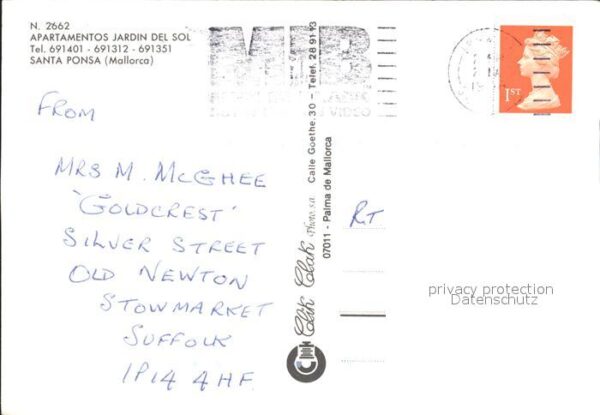 N. 2662
APARTAMENTOS JARDIN DEL SOL
Tel. 691401 - 691312 - 691351
SANTA PONSA (Mallorca)
FROM
MRS M. MCGHEE
'GOLDCREST'
SILVER STREET
OLD NEWTON
STOWMARKET
SUFFOLK
IP14 4HF.
Clik Clak Photo s.a. Calle Goethe, 30 - Telef. 28 91 13
07011 - Palma de Mallorca
VIDEO
1ST
privacy protection
Datenschutz